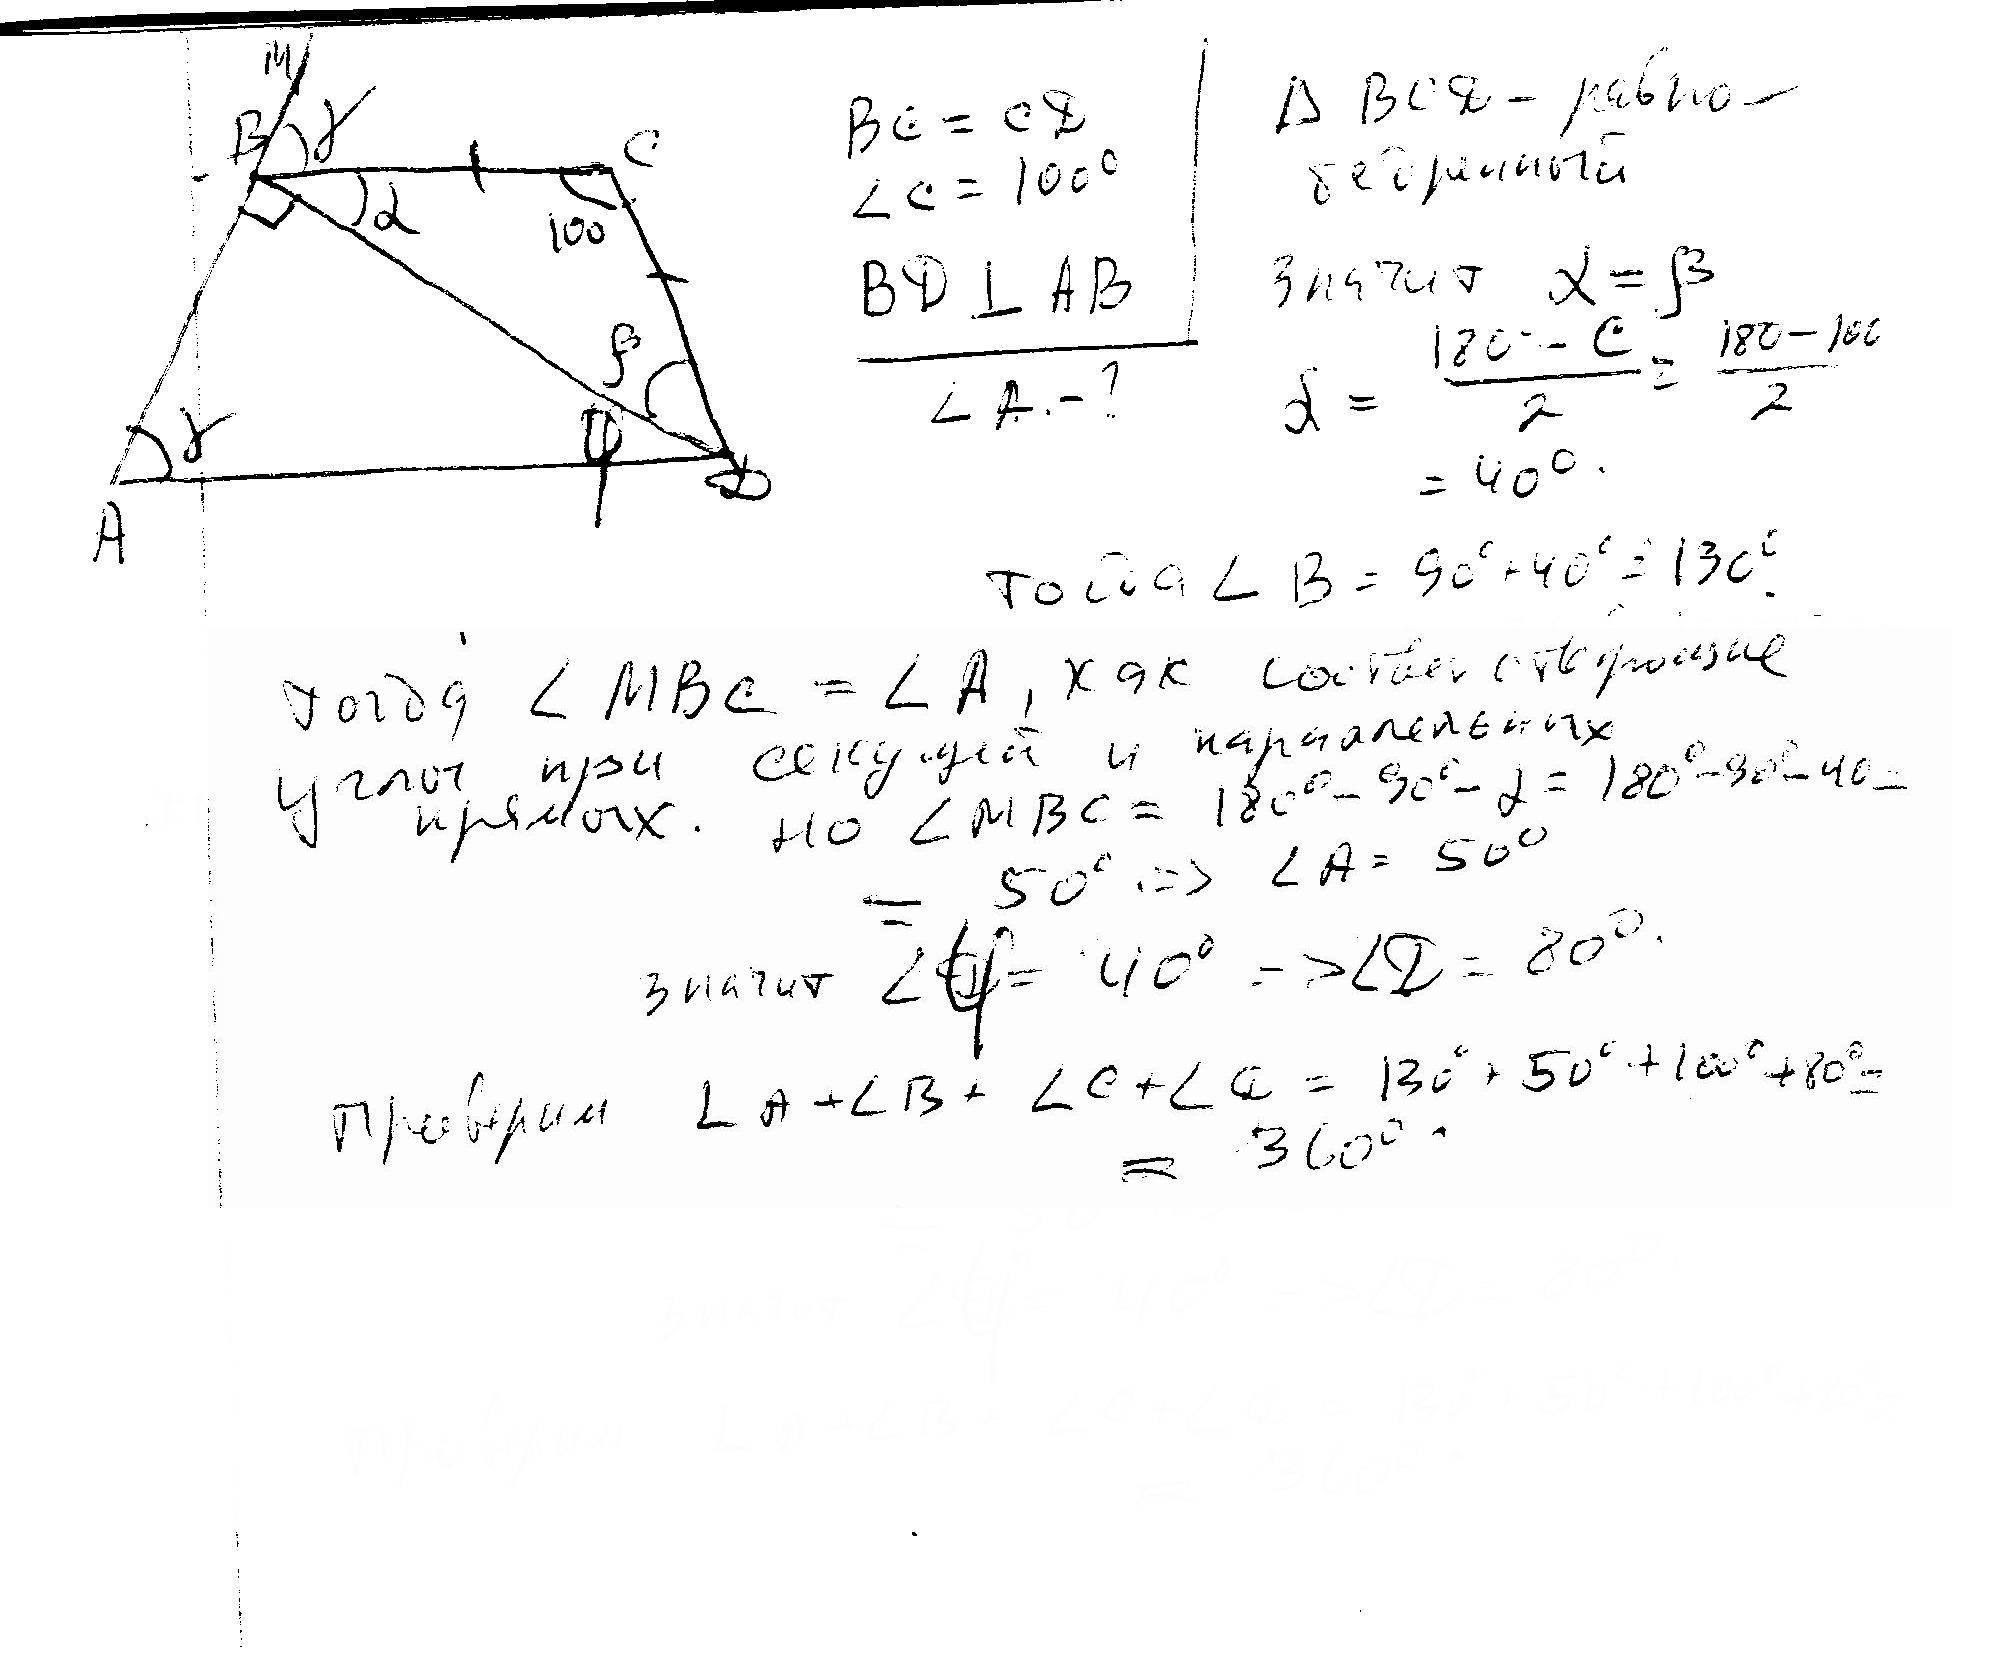 M
B γ
C
α
100
β
γ
φ
A
D
BC = CD
∠C = 100°
BD ⊥ AB
∠A - ?
Δ BCD - равно-
бедренный
значит α = β
α = (180° - C)/2 = (180 - 100)/2
= 40°.
тогда ∠B = 90° + 40° = 130°.
тогда ∠MBC = ∠A, как соответственные
углы при секущей и параллельных
прямых. но ∠MBC = 180° - 90° - α = 180° - 90° - 40 =
= 50° => ∠A = 50°
значит ∠φ = 40° => ∠D = 80°.
Проверим ∠A + ∠B + ∠C + ∠D = 130° + 50° + 100° + 80° =
= 360°.